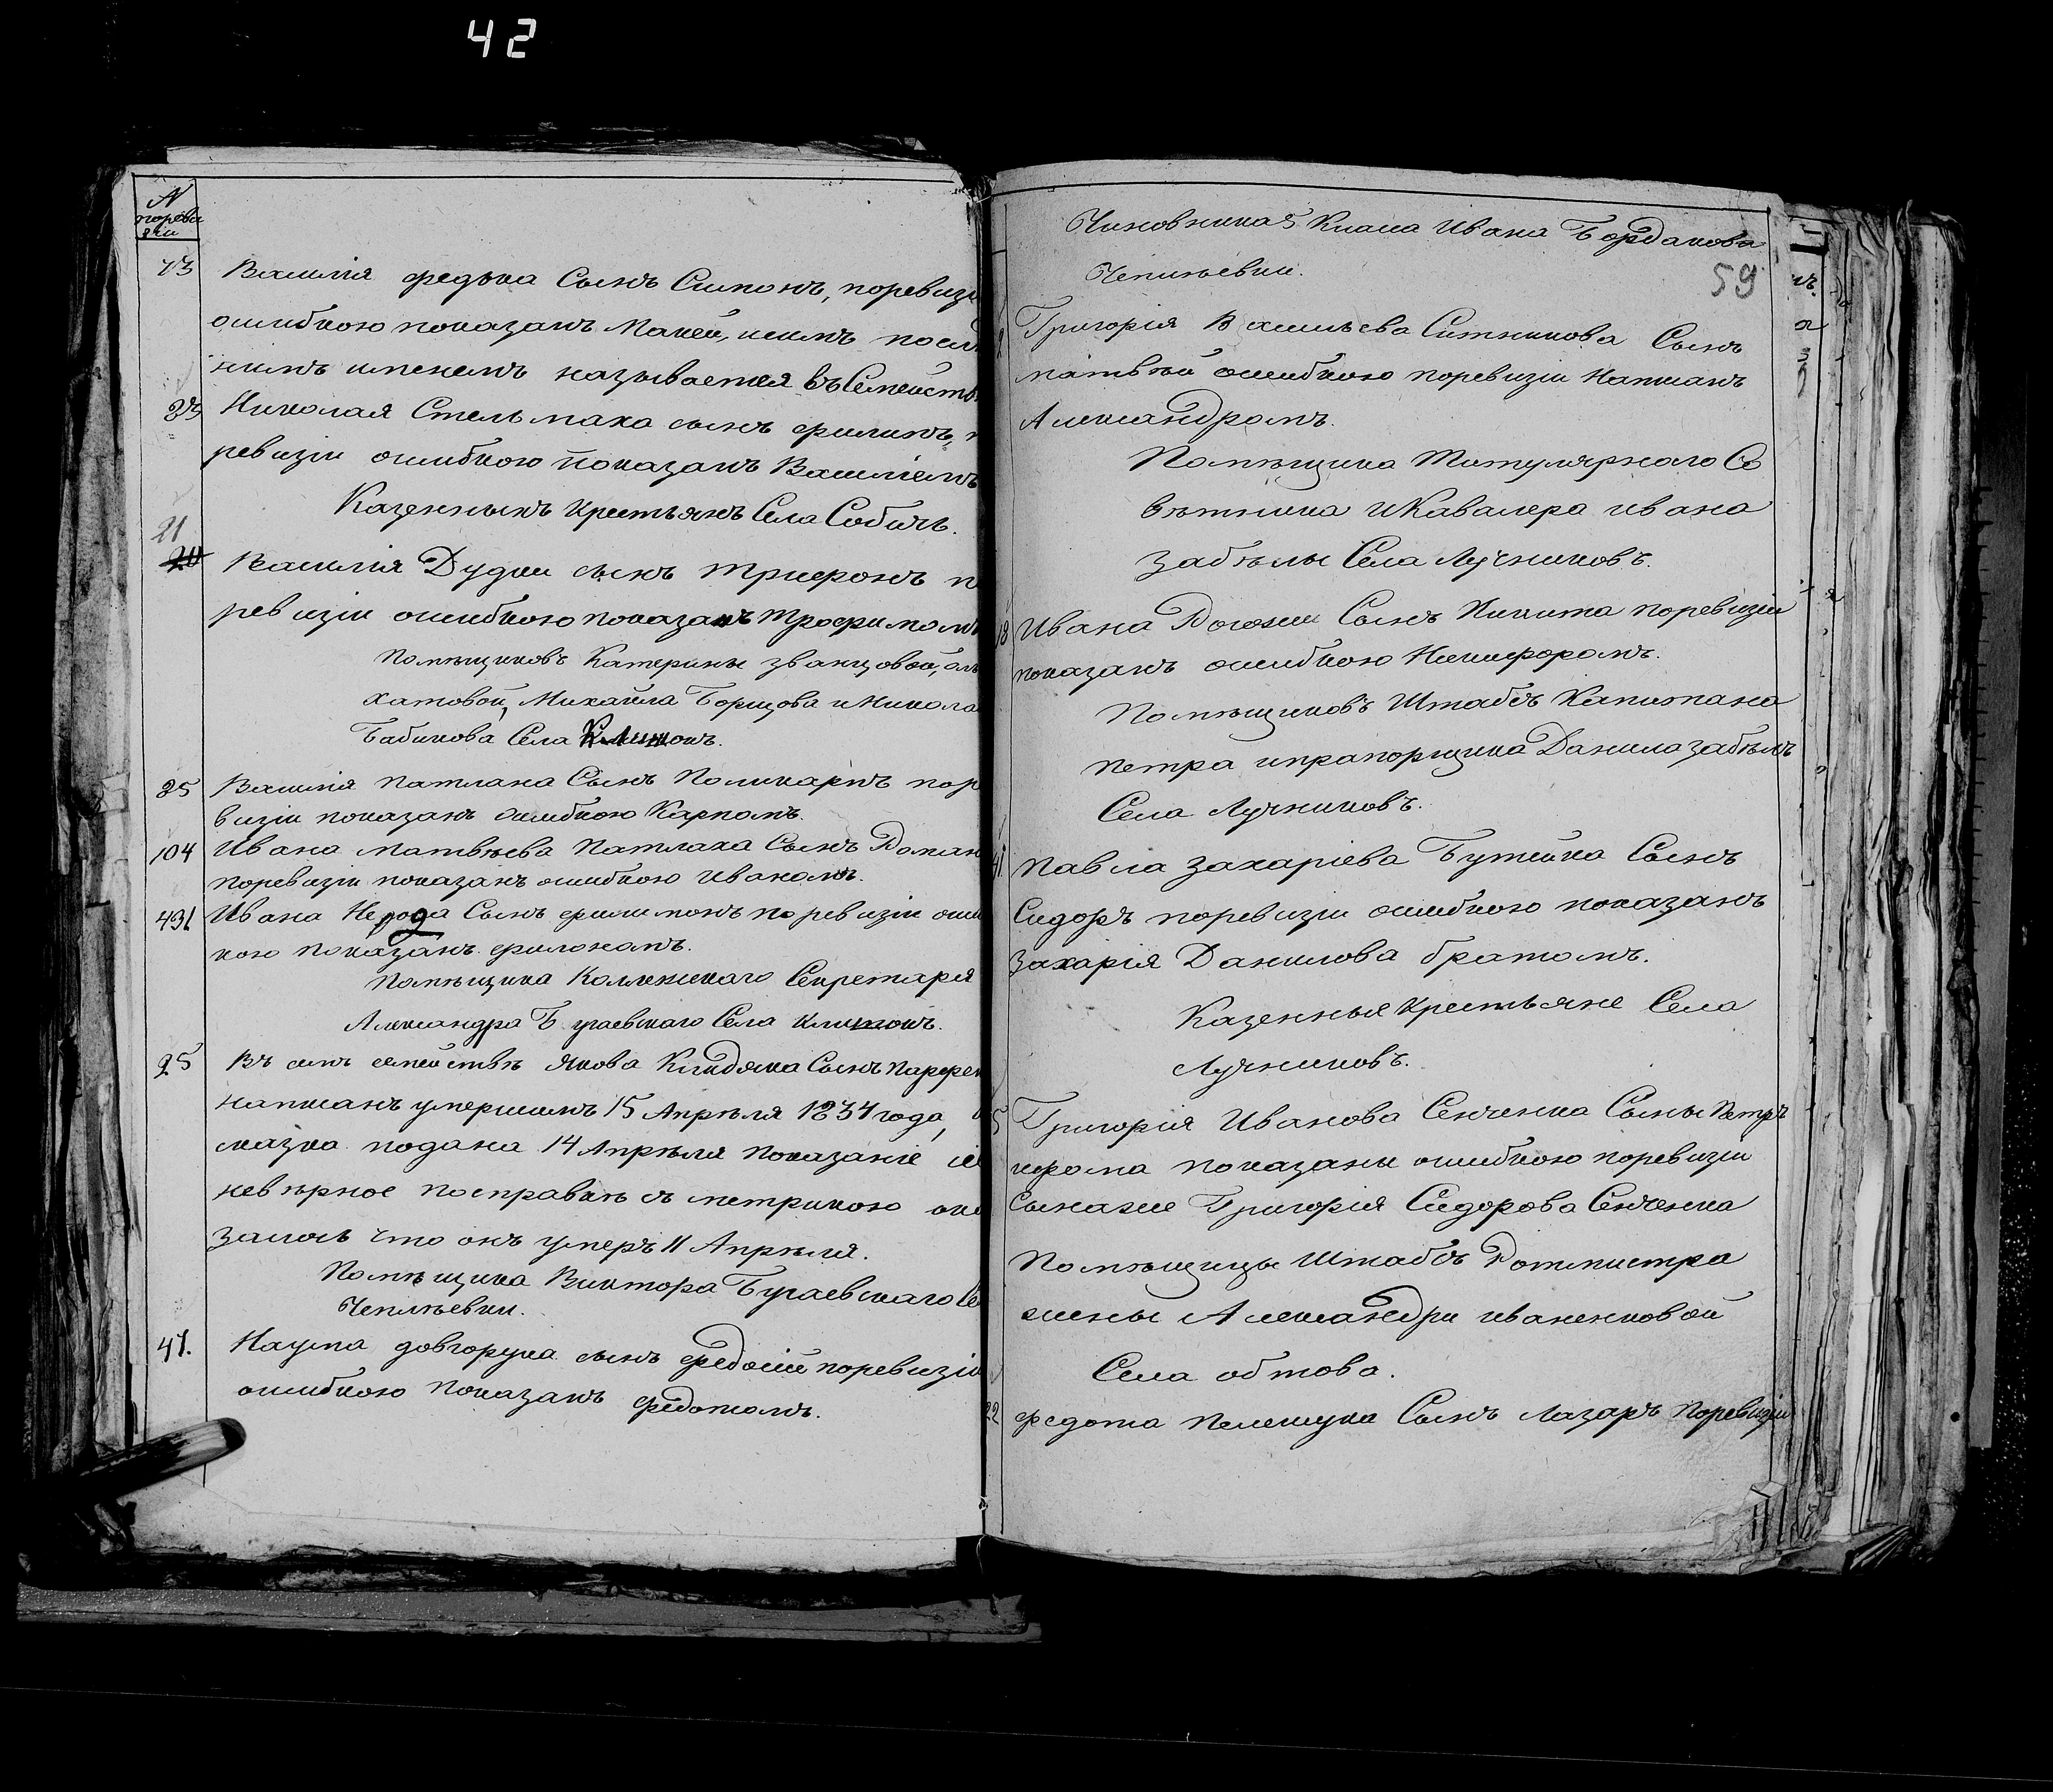 42
N
пореви
зіи
73 Василія федька Сынъ Симонъ, поревизі
ошибкою показанъ Макей, исимъ посл
нимъ именемъ называется въ Семейств
23 Николая Стельмаха сынъ филипъ, п
ревизіи ошибкою показанъ Василіемъ
Казенныхъ крестьянъ Села Собичъ.
21
20 Василія Дудки сынъ трифонъ п
ревизіи ошибкою показанъ трофимомъ
Помѣщиковъ Катерины званцовой, ал
хатовой, Михайла Борщова и Никола
Бабикова Села Клишокъ.
25 Василія патлана Сынъ Поликарпъ пор
визіи показанъ ошибкою Карпомъ.
104 Ивана матвѣева Патлаха Сынъ Роман
поревизіи показанъ ошибкою иваномъ.
431 Ивана Нерода Сынъ филимонъ поревизіи оши
кою показанъ филономъ.
помѣщика Коллежскаго Секретаря
Александра Бугаевскаго Села клишокъ.
25 Въ семъ семействѣ якова Сынъ парфен
написанъ умершимъ 15 Апрѣля 1834 года,
сказка подана 14 Апрѣля показаніе
невѣрное посправкѣ съ метрикою ока
залось что онъ умеръ 11 Апрѣля.
Помѣщика Виктора Бугаевскаго Се
Чепліевки.
41. Наума довгорука сынъ федосій поревизіи
ошибкою показанъ федотомъ.
Чиновника 5 Класа Ивана Бордакова
Чепліевки.
59
Григорія Васильева Ситникова Сынъ
матвѣй ошибкою поревизіи Написанъ
Александромъ.
Помѣщика Титулярнаго Со
вѣтника иКавалера ивана
забѣлы Села Лучниковъ.
18 Ивана Сынъ Никита поревизіи
показанъ ошибкою Никифоромъ.
Помѣщиковъ Штабсъ Капитана
петра ипрапорщика Данила забѣлъ
Села Лучниковъ.
41 Павла захаріева Бутейка Сынъ
Сидоръ поревизіи ошибкою показанъ
захарія Данилова братомъ.
Казенные крестьяне Села
Лучниковъ.
5 Григорія Иванова Сенченка Сыны Петръ
ифома показаны ошибкою поревизіи
Сынами Григорія Сидорова Сенченка
помѣщицы Штабсъ Ротмистра
жены Александры иваненковой
Села обтова.
22 федота пелешука Сынъ лазаръ поревизіи